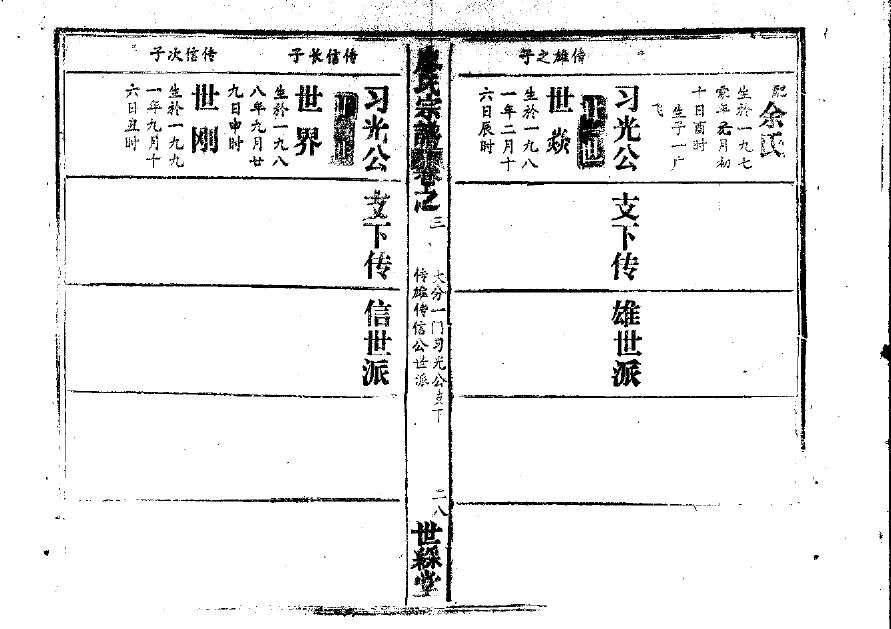 配
余氏
生於一九七
蒙年元月初
十日酉时
生子一广
飞
传雄之子
习光公支下传雄世派
世焱
生於一九八
一年二月十
六日辰时
廖氏宗譜卷之三
大分一门习光公支下
传雄传信公世派
二八
世綵堂
习光公支下传信世派
传信长子
世界
生於一九八
八年九月廿
九日申时
传信次子
世刚
生於一九九
一年九月十
六日丑时